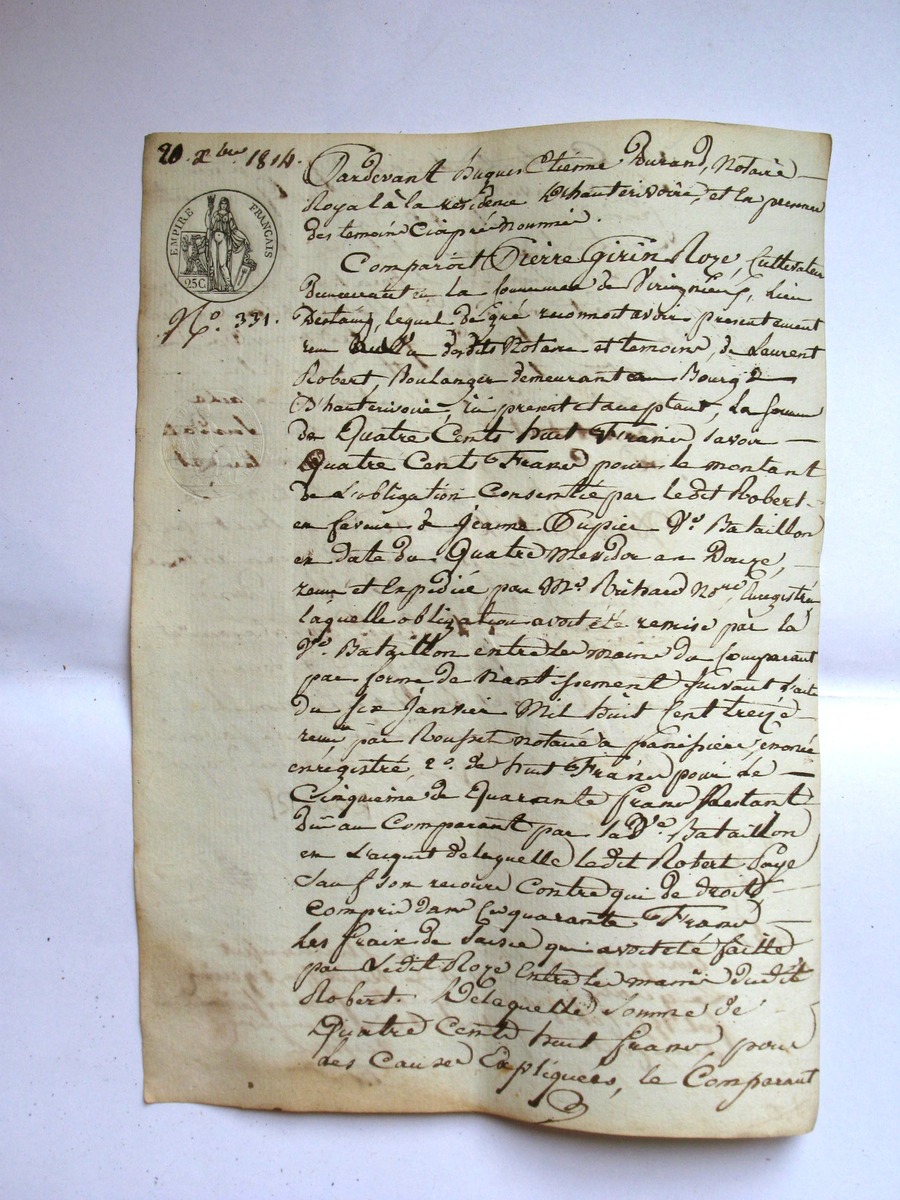 20 xbre 1814.
EMPIRE FRANÇAIS
25C.
No. 331.
Pardevant hugues Etienne Durand, Notaire
Royal à la residence D'hauterivoire, et en presence
des temoins Ciaprés nommés.
Comparoit Pierre Girin Roze, Cultivateur
Demeurant en la Commune de Virigneux, Lieu
Destaing, lequel de gré reconnoit avoir presentement
recu desdits Notaire et temoins, de Laurent
Robert, Boulanger demeurant au Bourg de
D'hauterivoire, ici present et aceptant, la somme
de Quatre Cents huit Francs savoir
Quatre Cents Francs pour le montant
de L'obligation Consentie par ledit Robert
en faveur de Jeanne Dupier Ve. Bataillon
en date du Quatre messidor an Douze,
recue et Expediée par Me. Brihard Nore. Enregistrée
laquelle obligation avoit été remise par la
Ve. Bataillon entre les mains du Comparant
par forme de Nantissement suivant L'acte
du six Janvier Mil huit Cent treize
recu par Rousset notaire a panissiere, enonce
enregistré, 2o. de huit Francs pour le
Cinquieme de Quarante francs Restant
Dû au Comparant par la De. Bataillon
en L'acquit de laquelle ledit Robert Paye
sauf son recours Contre qui de droit
Compris dans Ces quarante Francs
les fraix de saisie qui avoit été faitte
par Ledit Roze Entre les mains dudit
Robert. De laquelle Somme de
Quatre Cents huit francs pour
les Causes Expliquées, le Comparant